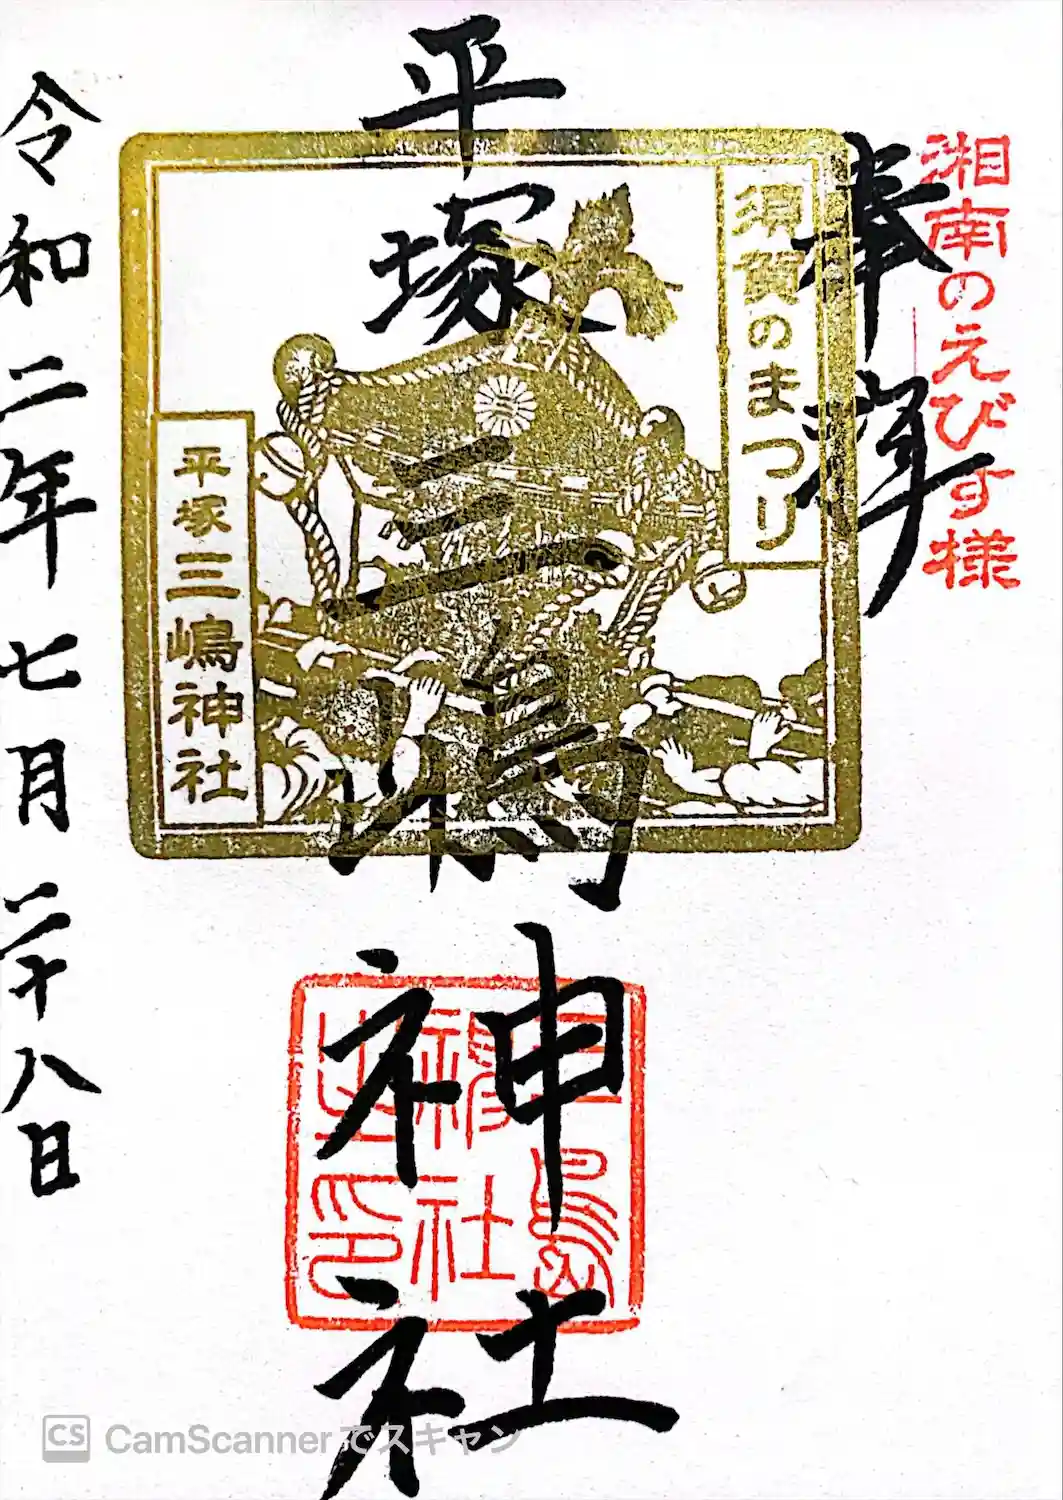 湘南のえびす様
奉拝
須賀のまつり
平塚三嶋神社
平塚三嶋神社
三島神社之印
令和二年七月二十八日
CS CamScannerでスキャン